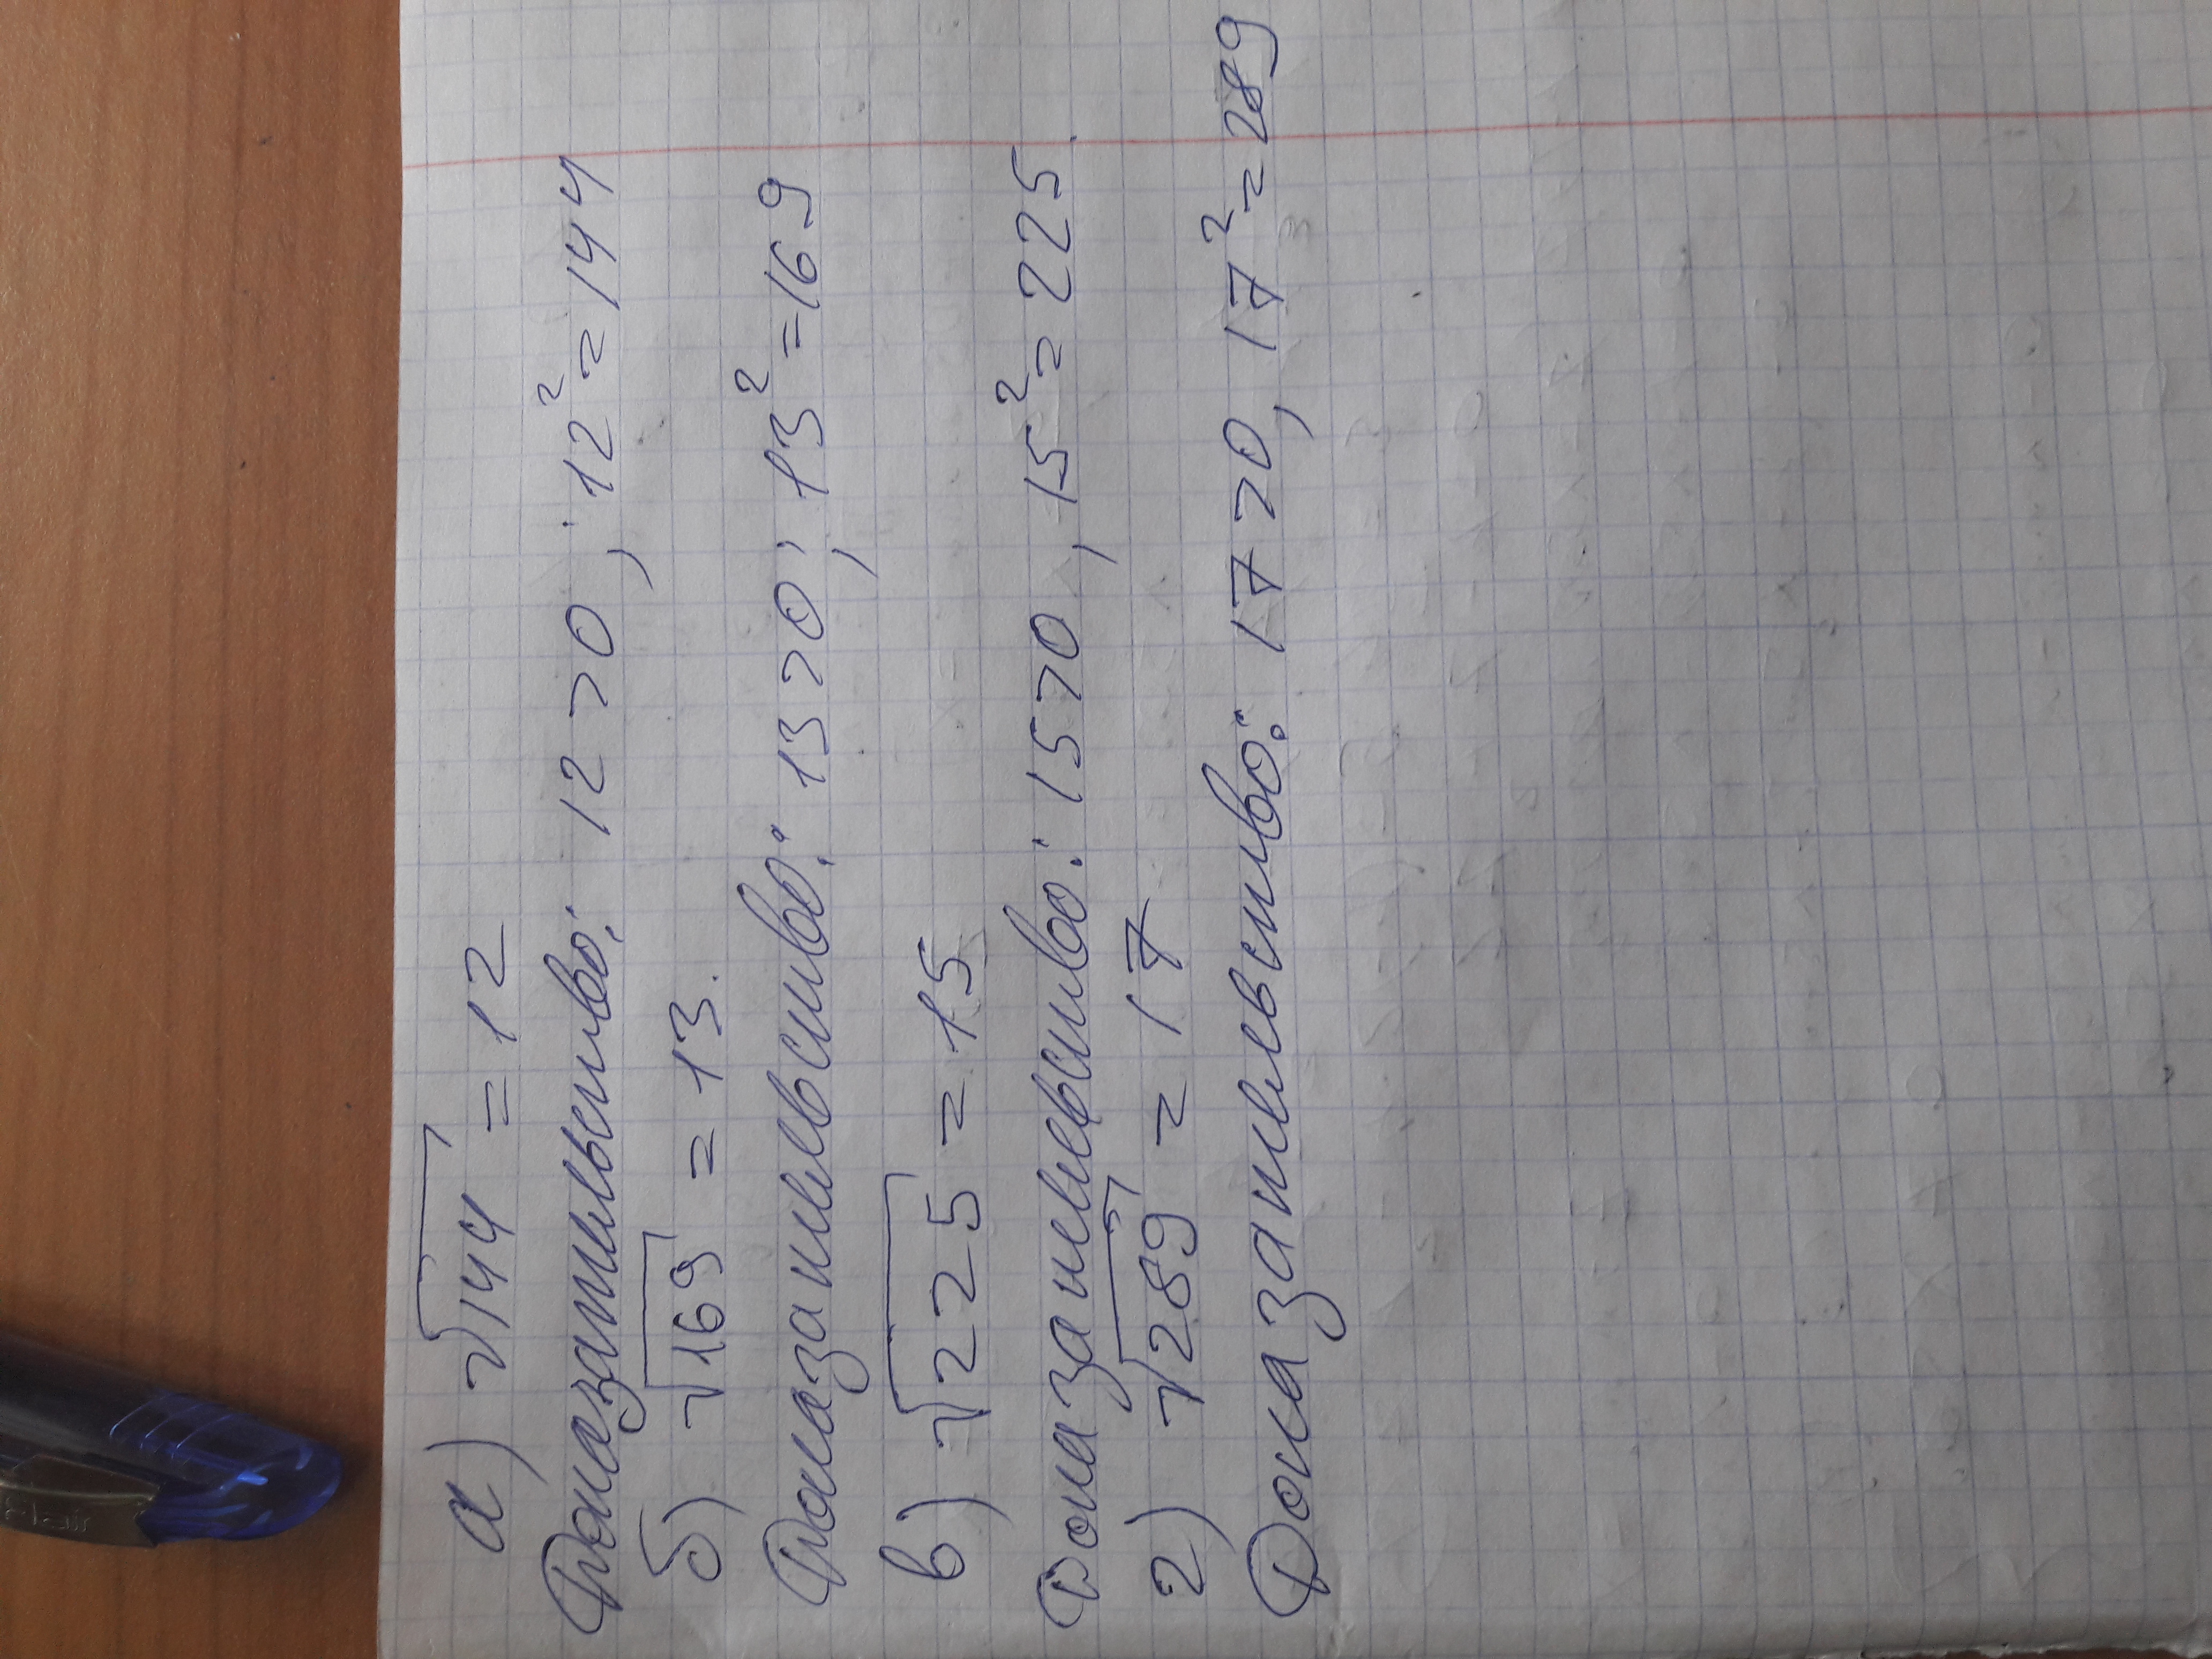 а) √144 = 12
Доказательство: 12 > 0, 12² = 144
б) √169 = 13.
Доказательство: 13 > 0; 13² = 169
в) √225 = 15
Доказательство: 15 > 0, 15² = 225.
г) √289 = 17
Доказательство: 17 > 0, 17² = 289